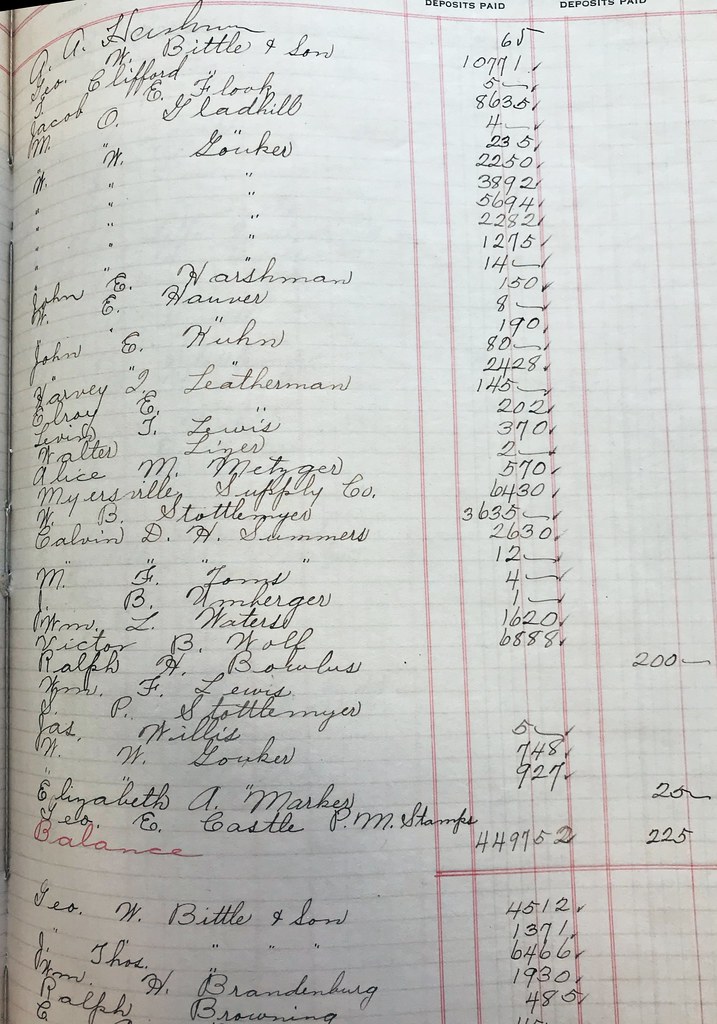 DEPOSITS PAID DEPOSITS PAID
A. A. Harshman 65
Geo. W. Bittle & Son 10771
T. Clifford Flook 5—
Jacob E. " 8635
M. O. Gladhill 4—
" " " 235
W. W. Gouker 2250
" " " 3892
" " " 5694
" " " 2282
" " " 1275
" " " 14—
John E. Harshman 150
W. E. Hauver 8—
" " " 190
John E. Kuhn 80—
" " " 2428
Harvey I. Leatherman 145—
Elroy E. " 202
Levin T. Lewis 370
Walter Liner 2—
Alice M. Metzger 570
Myersville Supply Co. 6430
W. B. Stottlemyer 3635—
Calvin D. H. Summers 2630
" " " " 12—
M. F. Toms 4—
J. B. Umberger 1—
Wm. L. Waters 1620
Victor B. Wolf 6888
Ralph H. Bowlus 200—
Wm. F. Lewis
J. P. Stottlemyer
Jas. Willis 5—
W. W. Gouker 748
" " " 927
Elizabeth A. Marker 25—
Geo. E. Castle P.M. Stamps
Balance 449752 225
Geo. W. Bittle & Son 4512
" " " " 1371
J. Thos. " 6466
Wm. H. Brandenburg 1930
Ralph Browning 485
C.